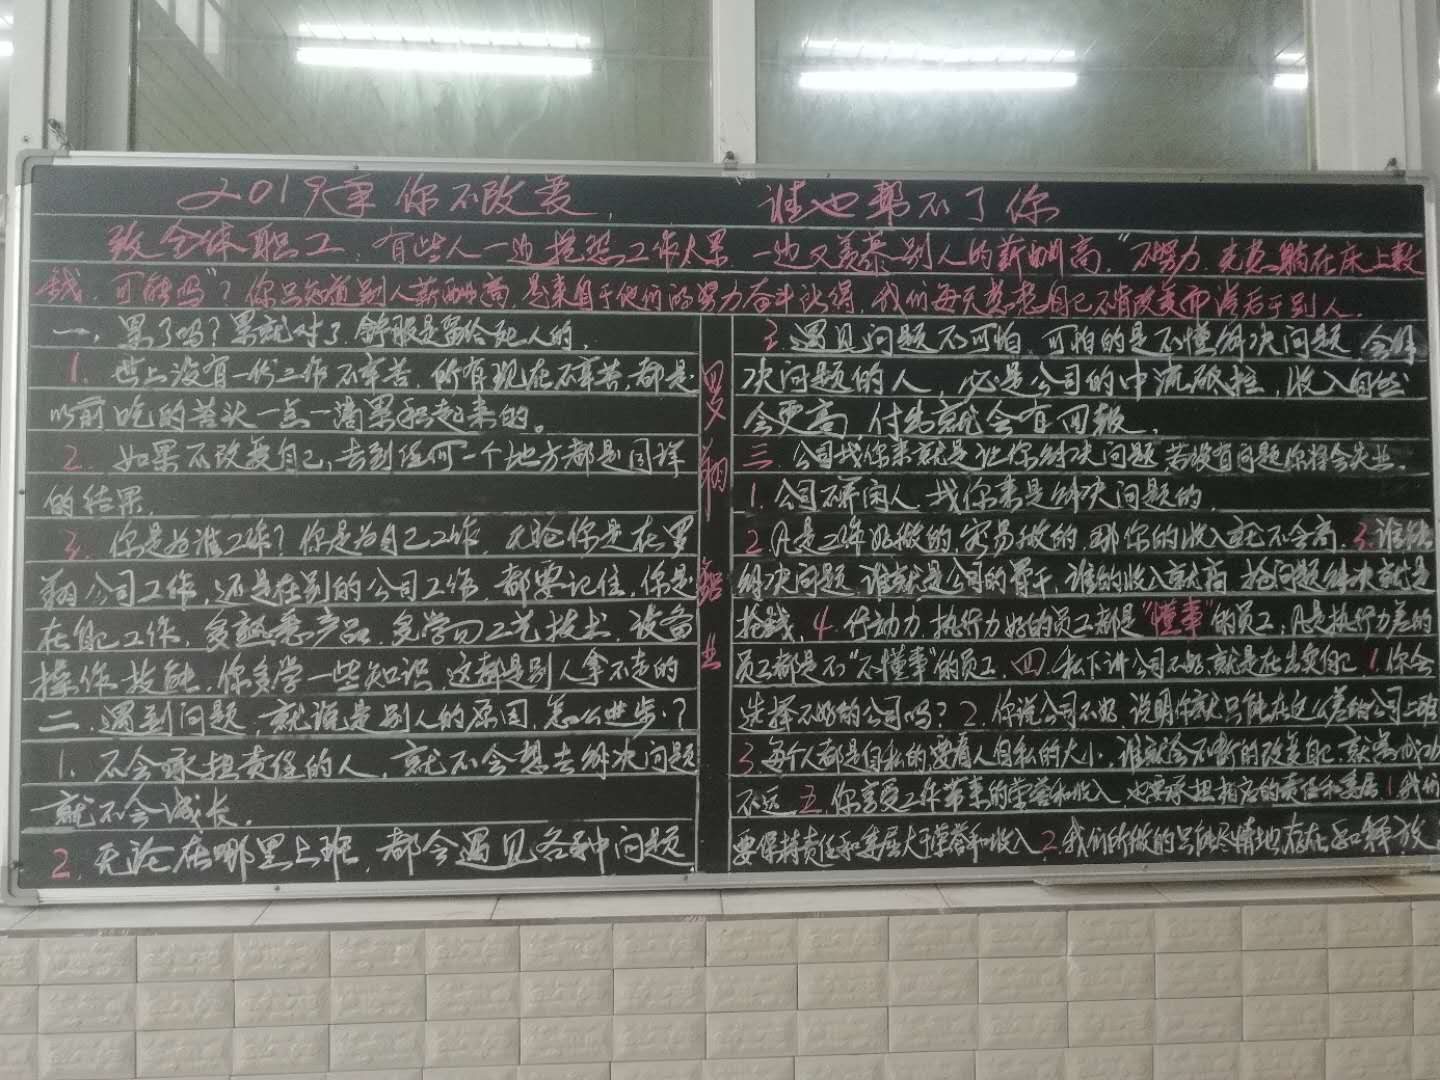 2019年 你不改变, 谁也帮不了你
致全体职工: 有些人一边抱怨工作太累 一边又羡慕别人的薪酬高, "不努力, 光想躺在床上数
钱, 可能吗"? 你只知道别人薪酬高, 是来自于他们的努力奋斗所得, 我们每天想想自己不肯改变而落后于别人.
一, 累了吗? 累就对了, 舒服是留给死人的,
1. 世上没有一份工作不辛苦, 所有现在不辛苦, 都是
以前吃的苦头一点一滴累积起来的。
2. 如果不改变自己, 去到任何一个地方都是同样
的结果,
3. 你是为谁工作? 你是为自己工作, 无论你是在罗
翔公司工作, 还是在别的公司工作, 都要记住, 你是
在自己工作, 多 意产品, 多学习工艺技术, 设备
操作技能, 你多学一些知识, 这都是别人拿不走的
二, 遇到问题, 就说是别人的原因, 怎么进步?
1. 不会承担责任的人, 就不会想去解决问题
就不会成长,
2. 无论在哪里上班, 都会遇见各种问题
罗翔铝业
3. 遇见问题不可怕, 可怕的是不懂解决问题, 会解
决问题的人, 必是公司的中流砥柱, 收入自然
会更高, 付出就会有回报,
三, 公司找你来就是让你解决问题, 若没有问题你将会失业,
1. 公司不养闲人, 找你来是解决问题的,
2. 凡是工作好做的, 容易做的, 那你的收入就不会高, 3. 谁能
解决问题, 谁就是公司的骨干, 谁的收入就高, 抢问题解决就是
抢钱, 4. 行动力, 执行力好的员工都是"懂事"的员工, 凡是执行力差的
员工都是不"不懂事"的员工, 四, 私下讲公司不好, 就是在出卖自己 1. 你会
选择不好的公司吗? 2. 你说公司不好, 说明你就只能在这么差的公司上班
3. 每个人都是自私的, 要看人自私的大小, 谁就会不断的改变自己, 就离成功
不远 五, 你享受工作带来的荣誉和收入, 也要承担相应的责任和委屈 1. 我们
要保持责任和委屈大于荣誉和收入 2. 我们所做的只能尽情地存在和释放